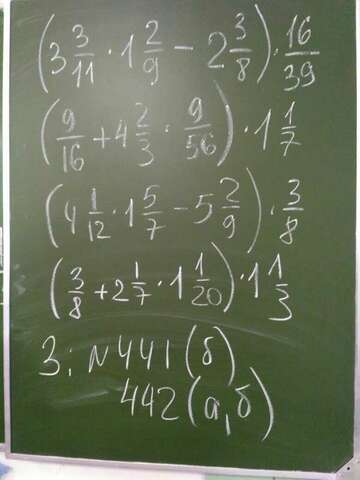 (3 3/11 · 1 2/9 − 2 3/8) · 16/39
(9/16 + 4 2/3 · 9/56) · 1 1/7
(4 1/12 · 1 5/7 − 5 2/9) · 3/8
(3/8 + 2 1/7 · 1 1/20) · 1 1/3
З: N 441 (б)
442 (а, б)